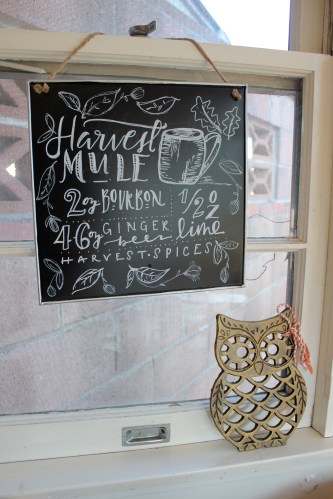 Harvest
MULE
2oz BOURBON
4-6oz GINGER
beer
1/2 oz
lime
HARVEST·SPICES